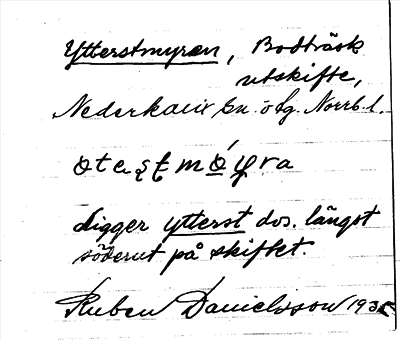 Ytterstmyran, Bodträsk
utskifte,
Nederkalix sn. o tg. Norrb. l.
ligger ytterst dvs. längst
söderut på skiftet.
Ruben Danielsson 1935